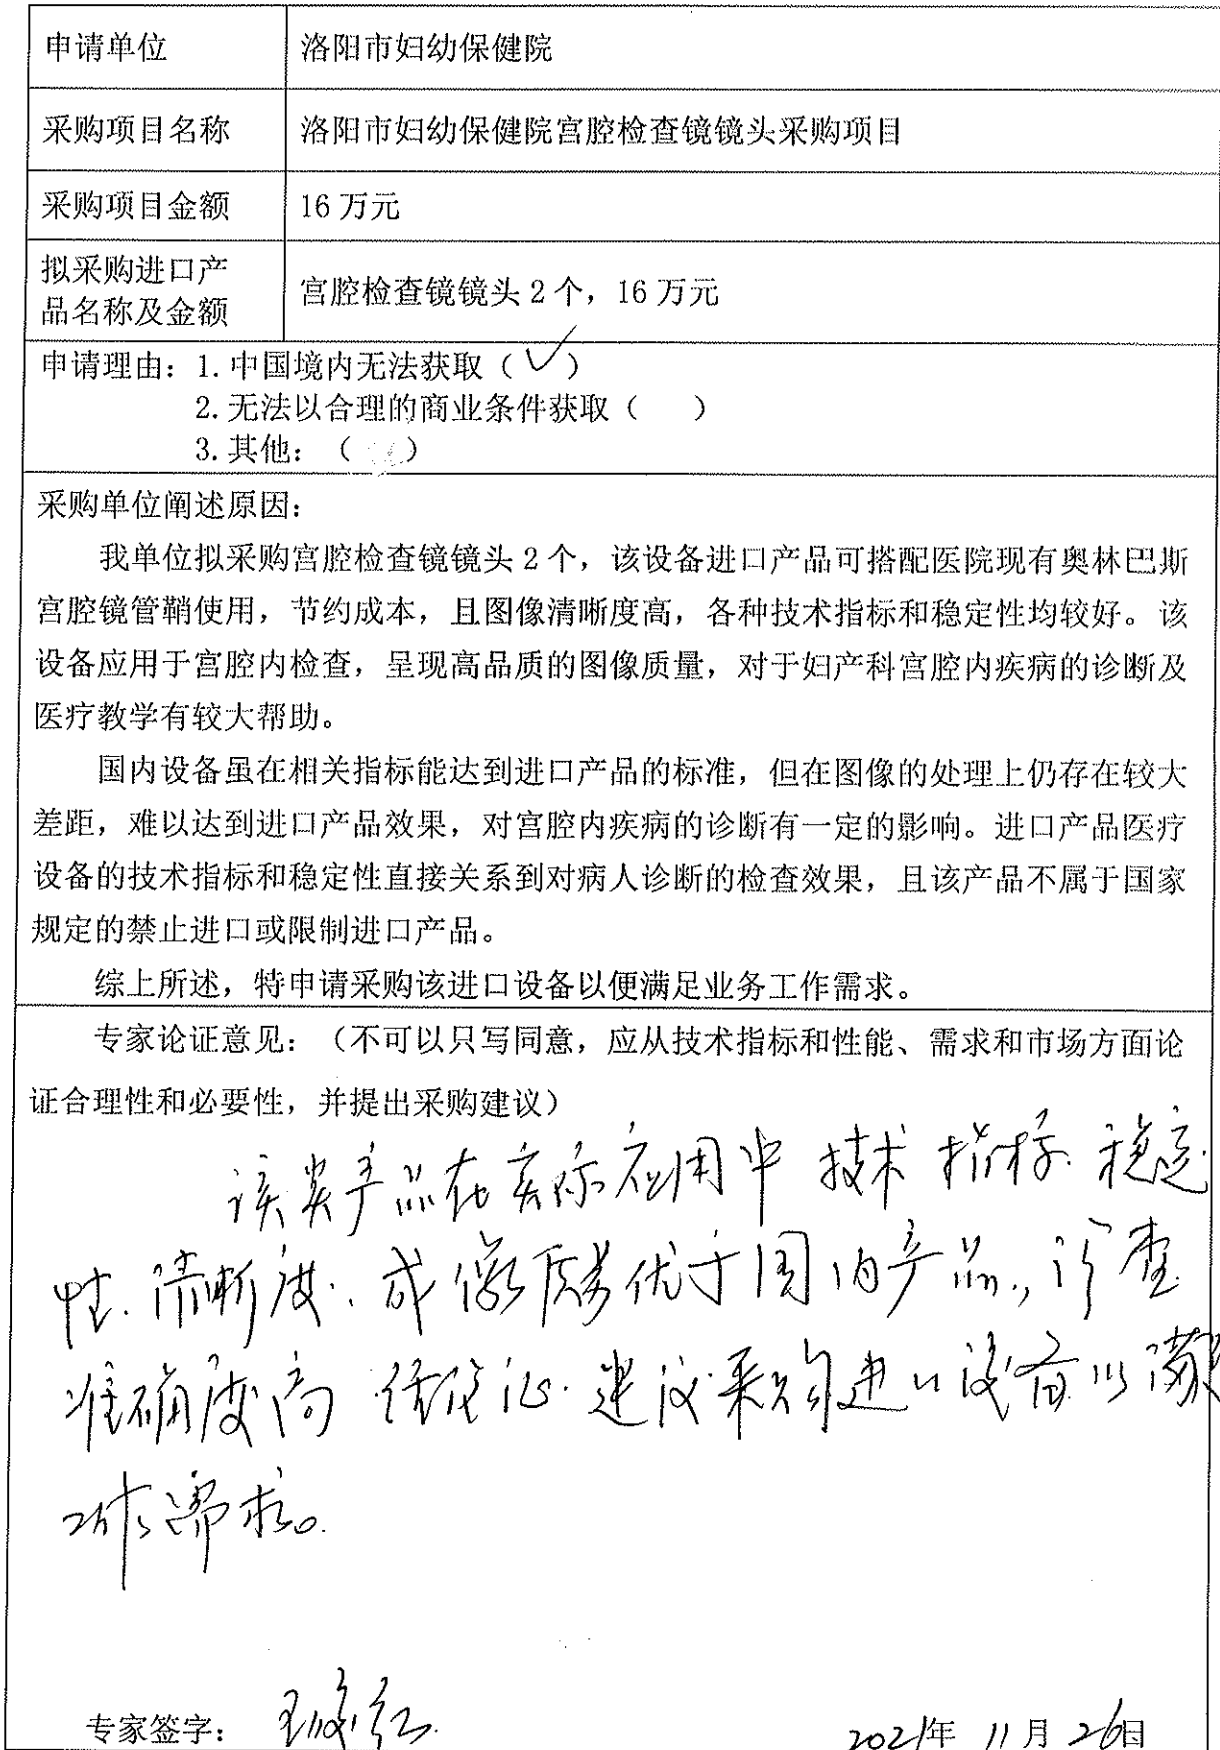 申请单位 洛阳市妇幼保健院
采购项目名称 洛阳市妇幼保健院宫腔检查镜镜头采购项目
采购项目金额 16万元
拟采购进口产
品名称及金额 宫腔检查镜镜头2个，16万元
申请理由：1.中国境内无法获取（✓）
2.无法以合理的商业条件获取（ ）
3.其他：（ ）
采购单位阐述原因：
我单位拟采购宫腔检查镜镜头2个，该设备进口产品可搭配医院现有奥林巴斯
宫腔镜管鞘使用，节约成本，且图像清晰度高，各种技术指标和稳定性均较好。该
设备应用于宫腔内检查，呈现高品质的图像质量，对于妇产科宫腔内疾病的诊断及
医疗教学有较大帮助。
国内设备虽在相关指标能达到进口产品的标准，但在图像的处理上仍存在较大
差距，难以达到进口产品效果，对宫腔内疾病的诊断有一定的影响。进口产品医疗
设备的技术指标和稳定性直接关系到对病人诊断的检查效果，且该产品不属于国家
规定的禁止进口或限制进口产品。
综上所述，特申请采购该进口设备以便满足业务工作需求。
专家论证意见：（不可以只写同意，应从技术指标和性能、需求和市场方面论
证合理性和必要性，并提出采购建议）
该类产品在实际应用中技术指标.稳定
性.清晰度.成像质量优于国内产品，
准确度高 建议采购进口设备以满足
工作需求。
专家签字：
2021年 11月 26日